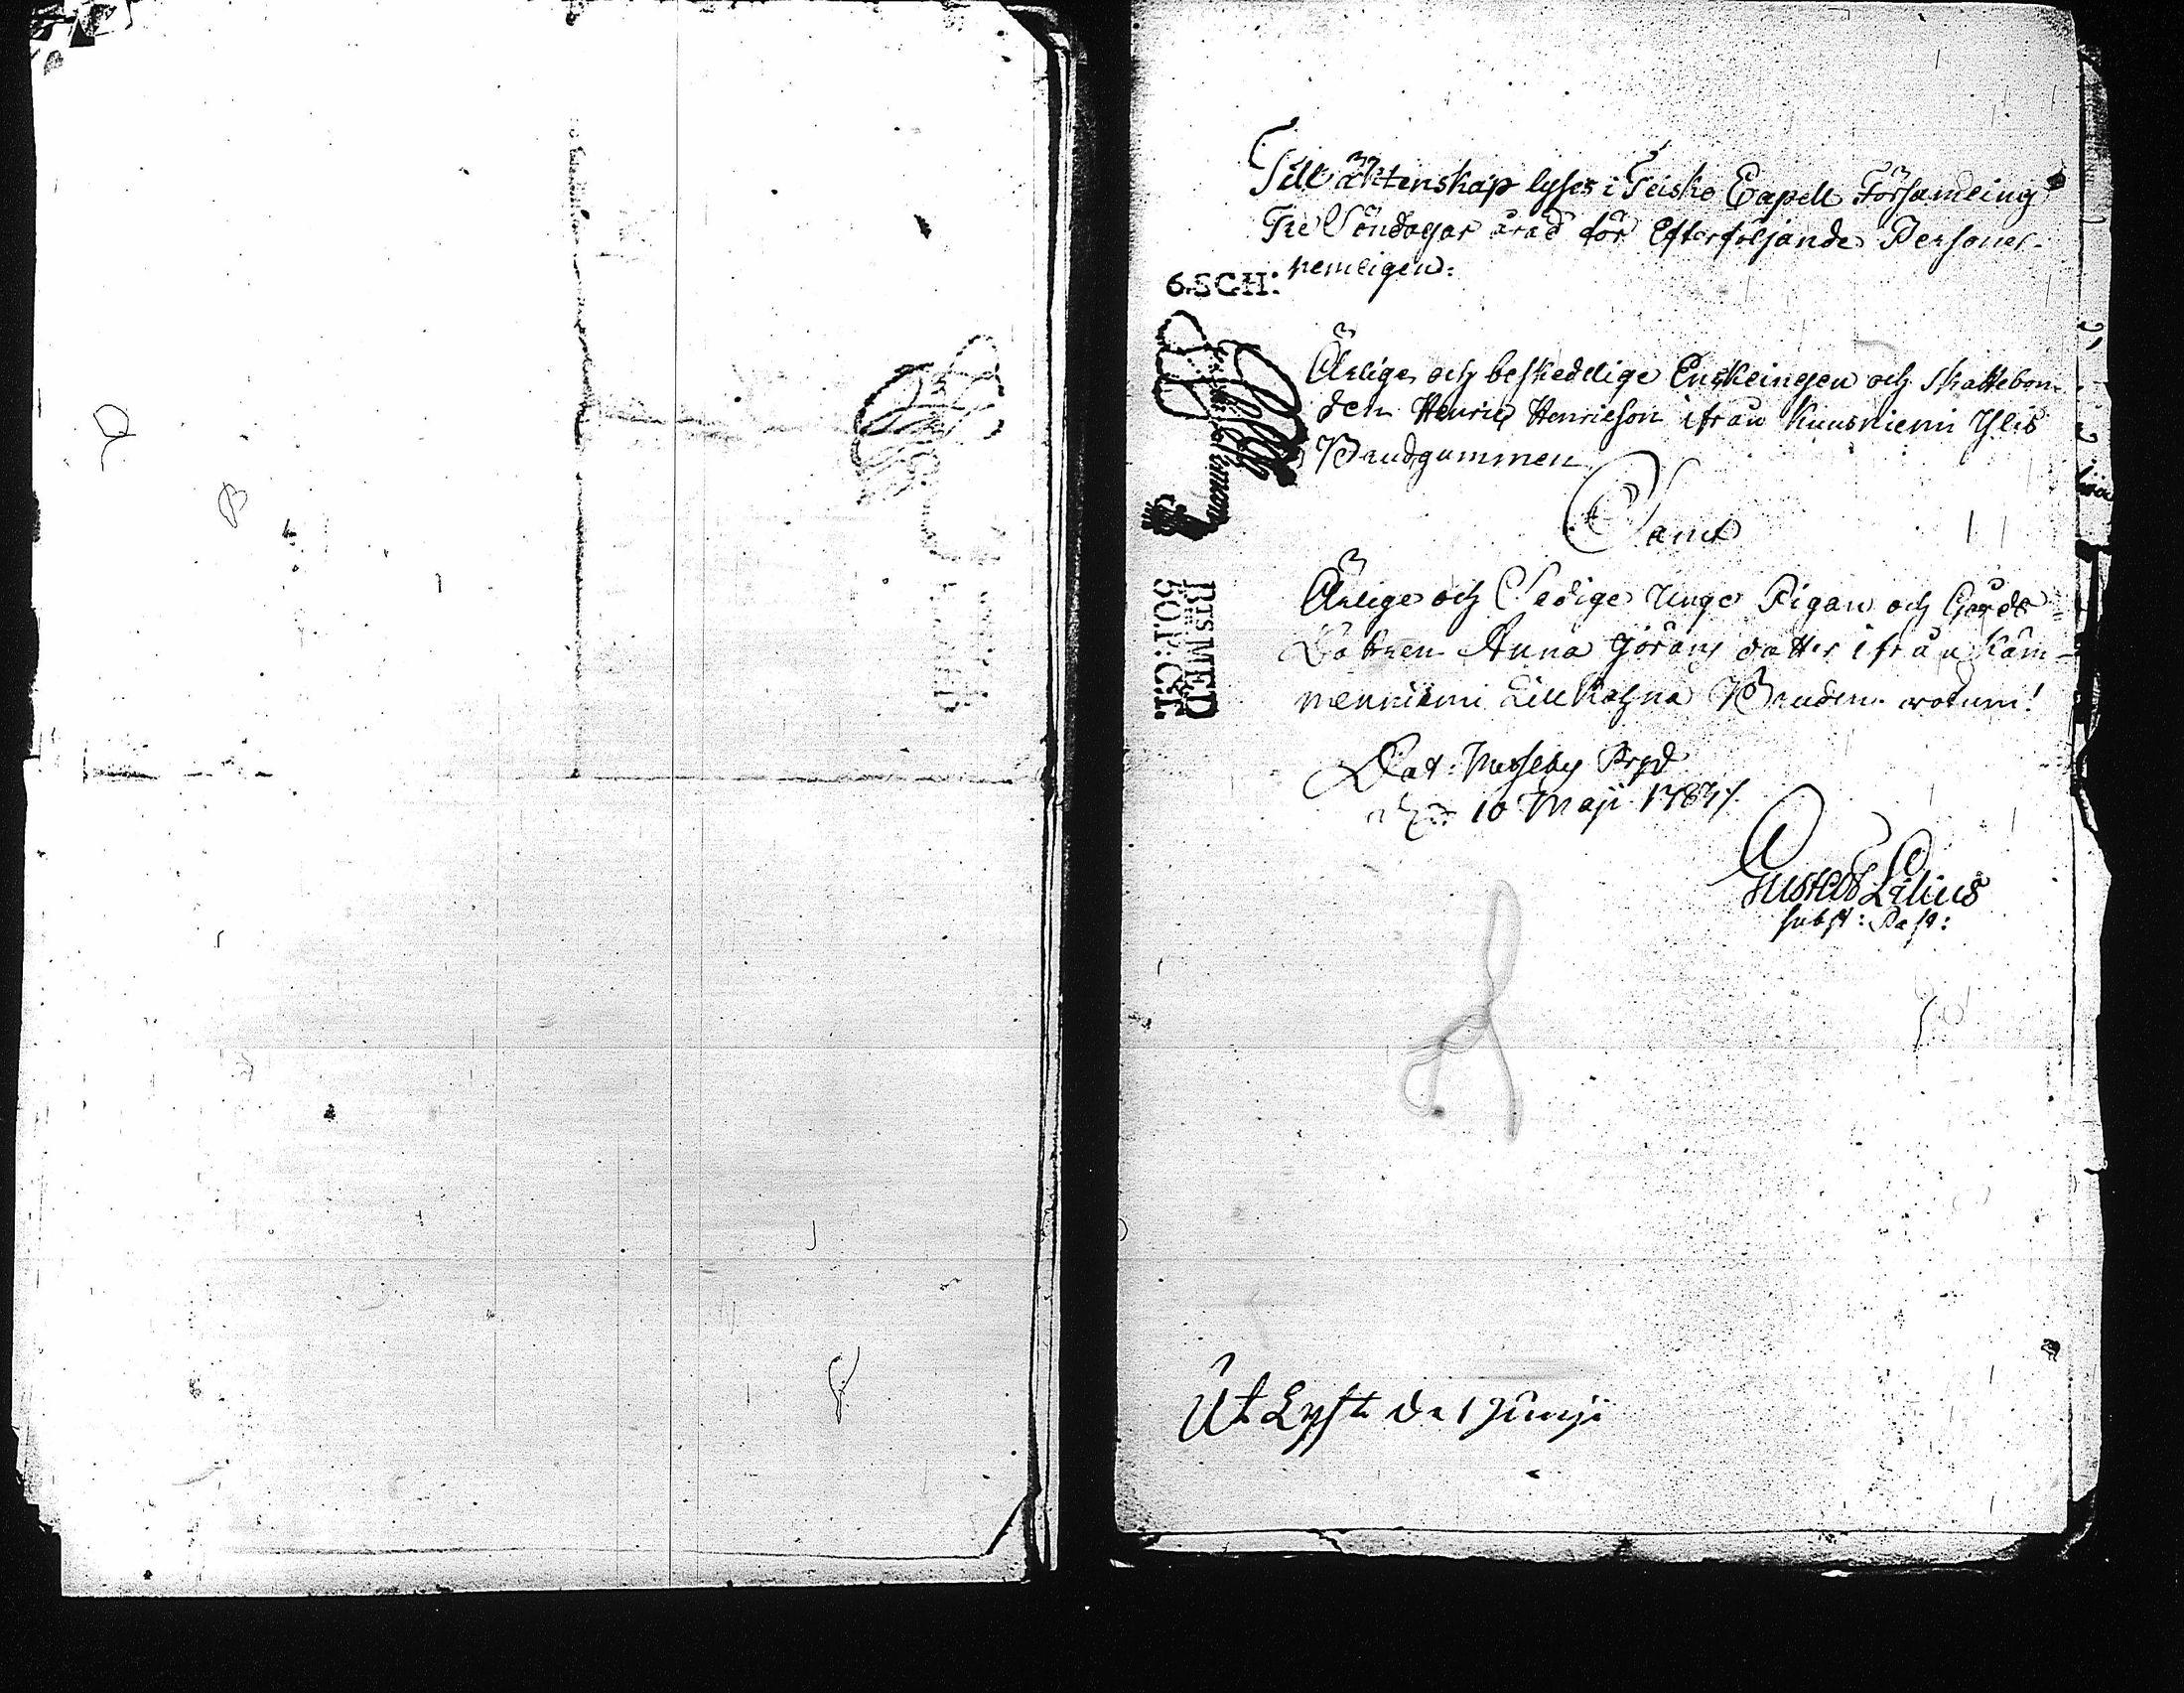 Till äktenskap lyses i Teisko Capell Församling
Tre Söndagar å rad för Efterföljande Personer
nemligen:
6.SCH:
Ärlige och beskedelige Enklingen och Skattebon-
den Henric Henricson ifrån Kuusniemi Ylis
Brudgummen
Samt
Ärlige och Sedige Unge Pigan och Gårds
Dottren Anna Görans dotter ifrån Käm-
menniemi Lill Kahna Bruden votum!
Dat: Messuby Prgd
d. 10 Maji 1783
Gustav Lilius
subst: Past:
BtsMED
50.P:CT.
Ut Lyst d. 1 Junji